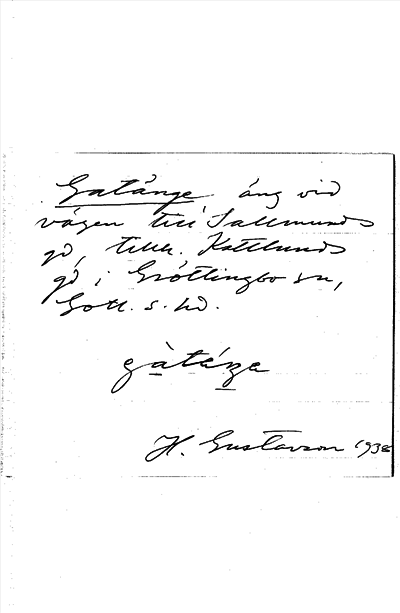 Gatänge äng vid
vägen till Sallmunds
gd, tillh. Kattlunds
gd i Gröttlingbo sn,
Gotl. s. hd.
gàtáŋe
H. Gustavson 1938